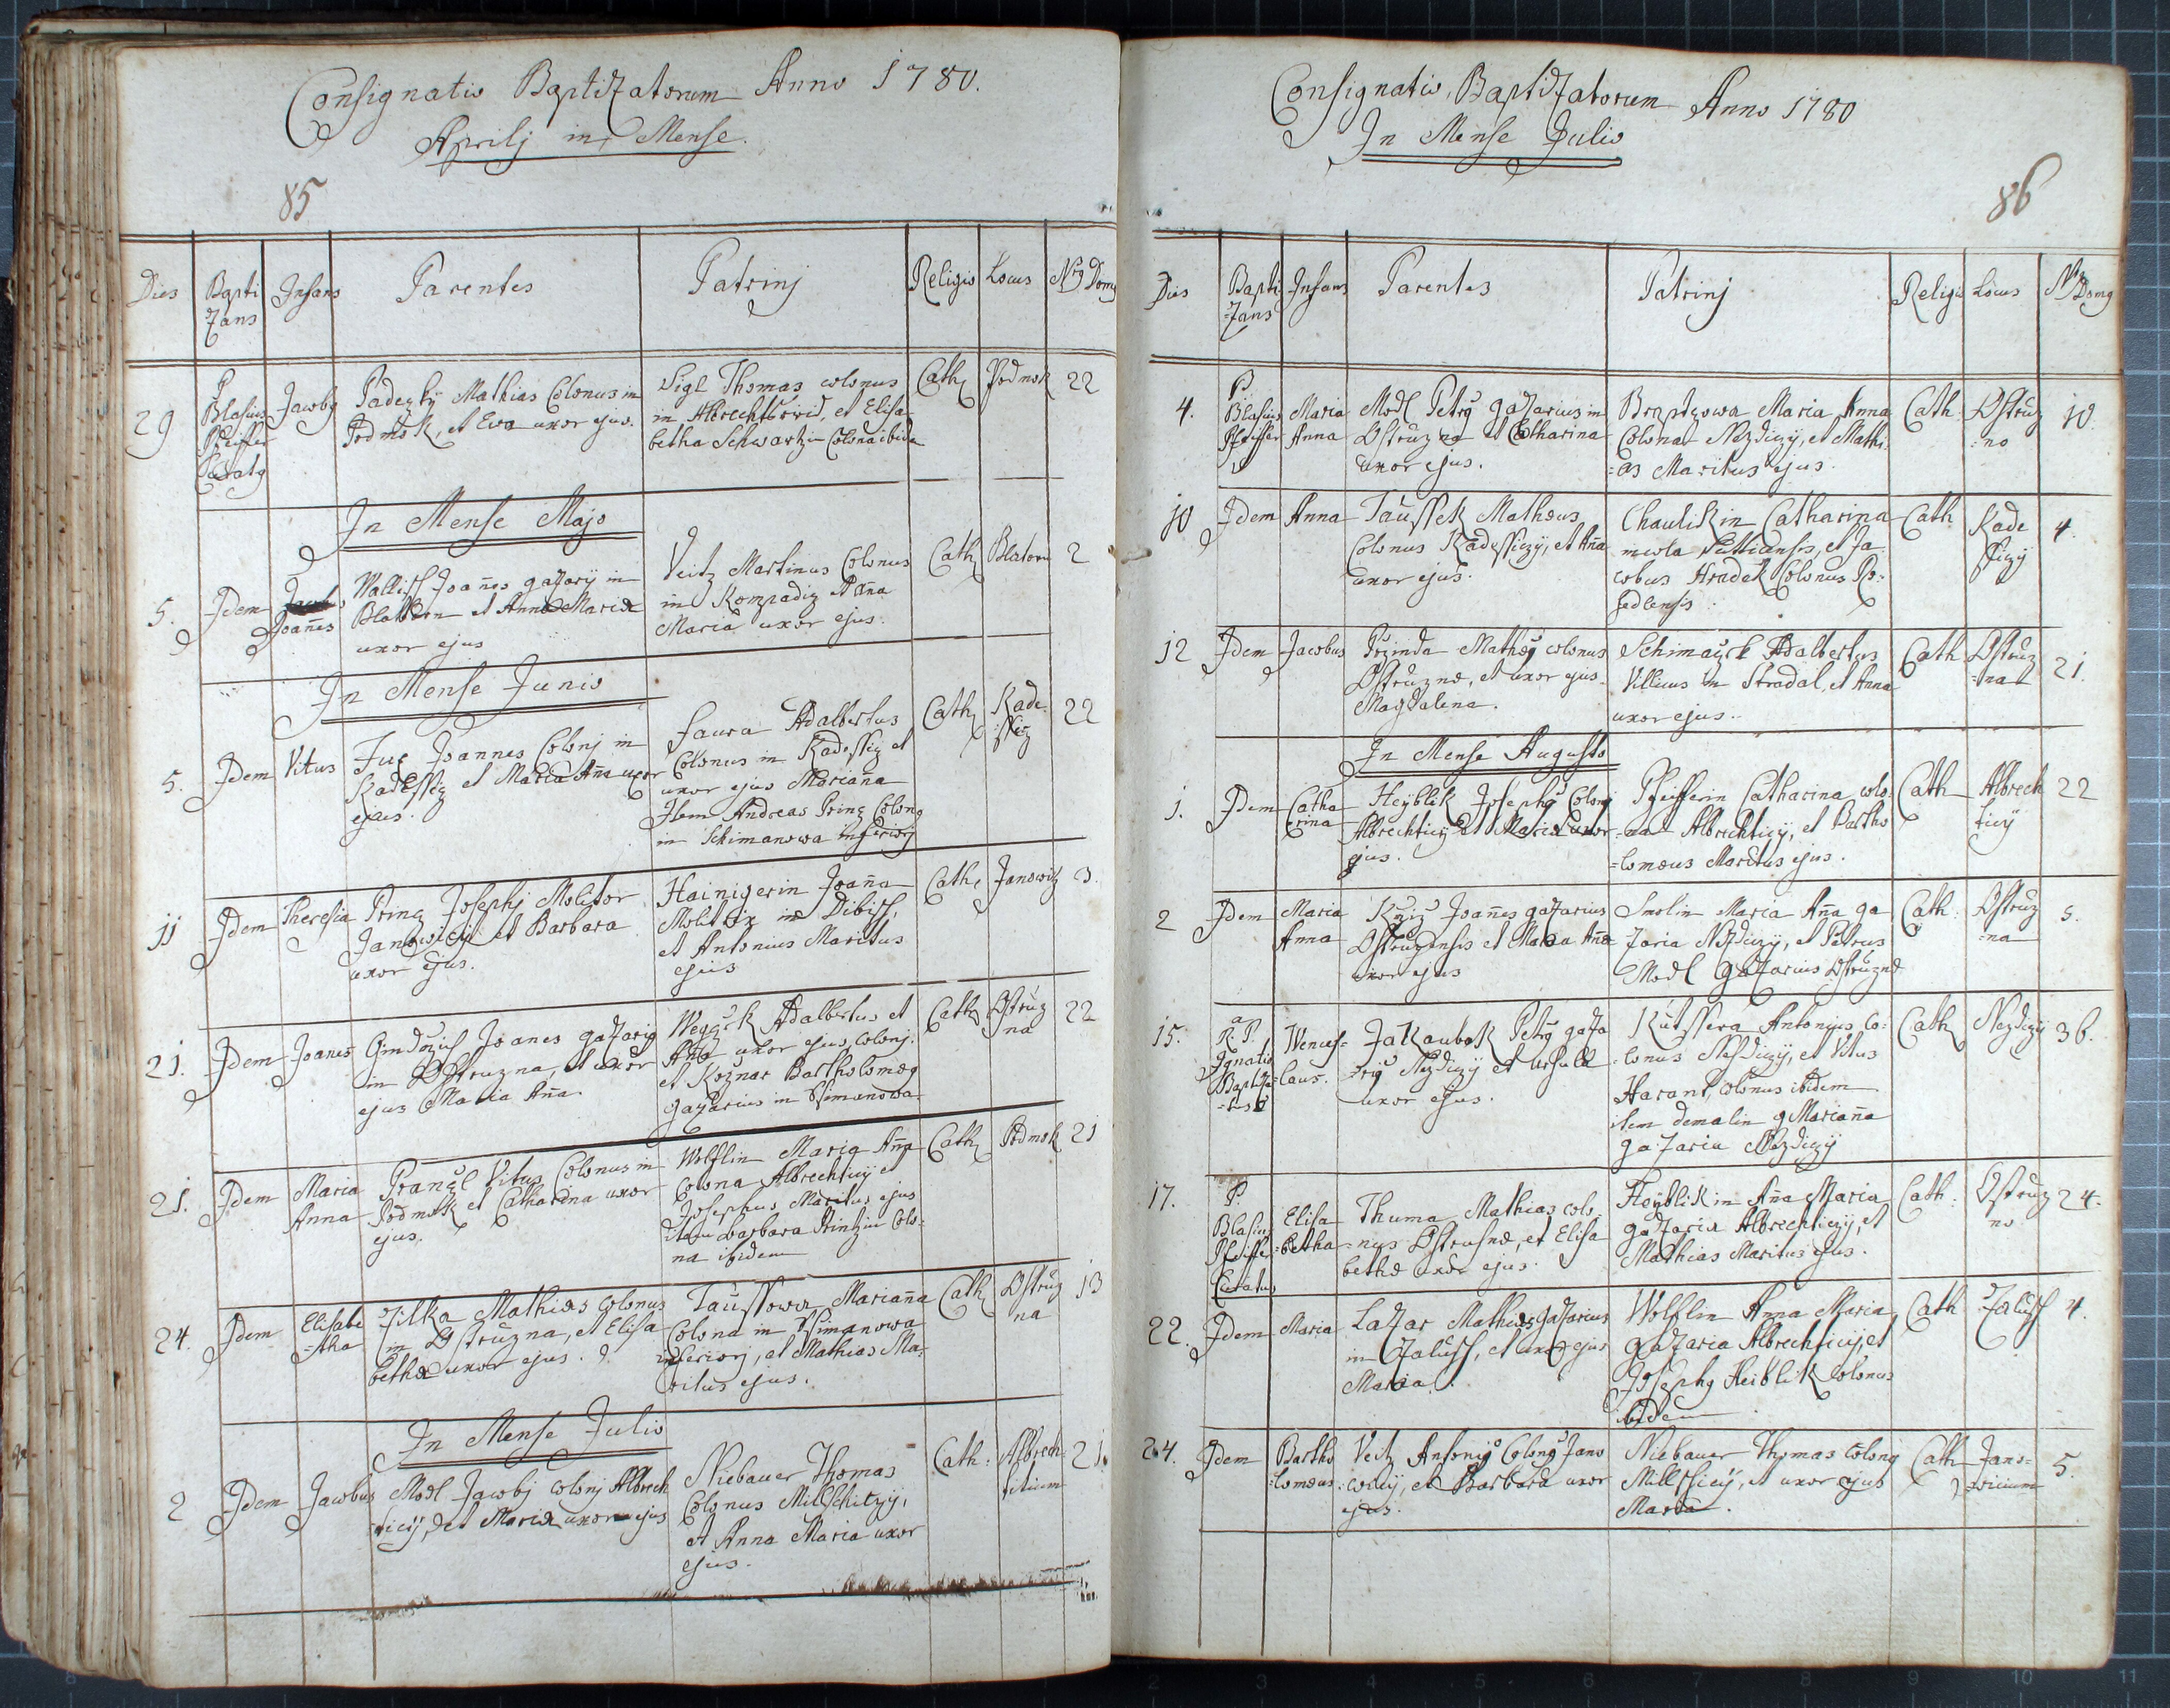 Consignatio Baptizatorum Anno 1780.
Aprilj in Mense.
85
Dies Bapti Infans Parentes Patrinj Religio Locus Nrg Domg
zans
29 P. Blasius Pfeiffer Jacobg
Padezky Mathias Colonus in
Podmok, et Eva uxor ejus.
Sigl Thomas colonus
in Albrechtsried, et Elisa
betha Schwartzin Colona ibidem
Cath Podmok 22
In Mense Majo
5. Idem Joañes
Wallisch Joañes gazarij in
Blattorn et Anna Maria
uxor ejus
Veitz Martinus Colonus
in Kompadiz Aña
Maria uxor ejus.
Cath Blatorn 2
In Mense Junio
5. Idem Vitus
Fux Joannes Colonj in
Kadessiz et Maria Aña uxor
ejus.
Faura Adalbertus
Colonus in Kadessiz et
uxor ejus Mariaña
Item Andreas Prinz Colong
in Schimanowa inferiorj
Cath Kade
ssiz 22
11 Idem Theresia
Prinz Josephj Molitor
Janowiczij et Barbara
uxor ejus.
Hainigerin Joaña
Molitrix in Dibiss,
et Antonius Maritus
ejus
Cath Janowitz 3.
21. Idem Joanes
Joanes gazarig
in Ostruzna, et uxor
ejus Maria Aña
Adalbertus et
Aña uxor ejus, colonj.
et Koznar Bartholomæg
gazarius in Ssimanowa
Cath Ostruz
na 22
21. Idem Maria
Anna
Prančl Vitus Colonus in
Podmok et Catharina uxor
ejus.
Wolflin Maria Aña
Colona Albrechticij et
Josephus Maritus ejus
item Barbara Printzin Colo-
na ibidem
Cath Podmok 21
24. Idem Elisabe
=tha
Jilka Mathias colonus
in Ostruzna, et Elisa
betha uxor ejus.
Taussowa Mariaña
Colona in Ssimanowa
inferiorj, et Mathias Ma-
ritus ejus.
Cath Ostruz
na 13
In Mense Julio
2 Idem Jacobus
Modl Jacobj colonj Albrech
=ticij, et Maria uxor ejus
Niebauer Thomas
Colonus Millschitzij,
et Anna Maria uxor
ejus.
Cath: Albrech
ticium 21.
Consignatio Baptizatorum Anno 1780
In Mense Julio
86
Dies Bapti Infans Parentes Patrinj Religio Locus Nr Domg
=zans
4. P. Blasius Pfeiffer Maria
Anna
Modl Petrg gazarius in
Ostruzna et Catharina
uxor ejus.
Braptzowa Maria Anna
Colona Nezdiczij, et Mathi-
=as Maritus ejus.
Cath: Ostruz
=no 10.
10 Idem Anna
Taussek Mathæus
Colonus Kadessiczij, et Aña
uxor ejus.
Chaulikin Catharina
incola Suttiensis, et Ja
cobus Hradek Colonus Ro-
sedlensis.
Cath Kade
ssiczij 4.
12 Idem Jacobus
Przinda Mathæg colonus
Ostruznæ, et uxor ejus.
Magdalena.
Schimačzek Adalbertus
Villicus in Stradal, et Anna
uxor ejus.
Cath Ostruz
=na 21.
In Mense Augusto
1. Idem Catha
rina
Heyblik Josephg Colonj
Albrechticij et Maria uxor
ejus.
Pfeifferin Catharina colo
=na Albrechticij, et Bartho
=lomæus Maritus ejus.
Cath Albrech
ticij 22
2 Idem Maria
Anna
Kržiž Joañes gazarius
Ostruznensis et Maria Aña
uxor ejus
Smolin Maria Aña ga
zaria Nezdiczij, et Petrus
Modl gazarius Ostruznæ
Cath: Ostruz
=na 5.
15. R. P.
Ignatio
Baptiza
=tus
Wences=
laus.
Jakaubek Petrg gaza
rig Nezdiczij et Ursula
uxor ejus.
Kutssera Antonius Co-
lonus Nesdiczij, et Vitus
Harant, colonus ibidem
item demalin g Mariaña
gazaria Nezdiczij
Cath Nezdizij 36.
17. P.
Blasius
Pfeiffer
Curatus
Elisa
=betha
Thuma Mathias colo-
=nus Ostrusnæ, et Elisa
betha uxor ejus.
Heyblikin Aña Maria
gazaria Albrechticzij, et
Mathias Maritus ejus.
Cath: Ostruz
no 24.
22. Idem Maria
Lazar Mathias gazarius
in Zalussy, et uxor ejus
Maria.
Wolflin Anna Maria
gazaria Albrechticij, et
Josephg Heiblik Colonus
ibidem
Cath Zaluss 4.
24. Idem Bartho
=lomæus.
Veitz Antonig Colong Jano
wicij, et Barbara uxor
ejus.
Niebauer Thomas Colong
Millssicij, et uxor ejus
Maria.
Cath Jano-
wicium 5.